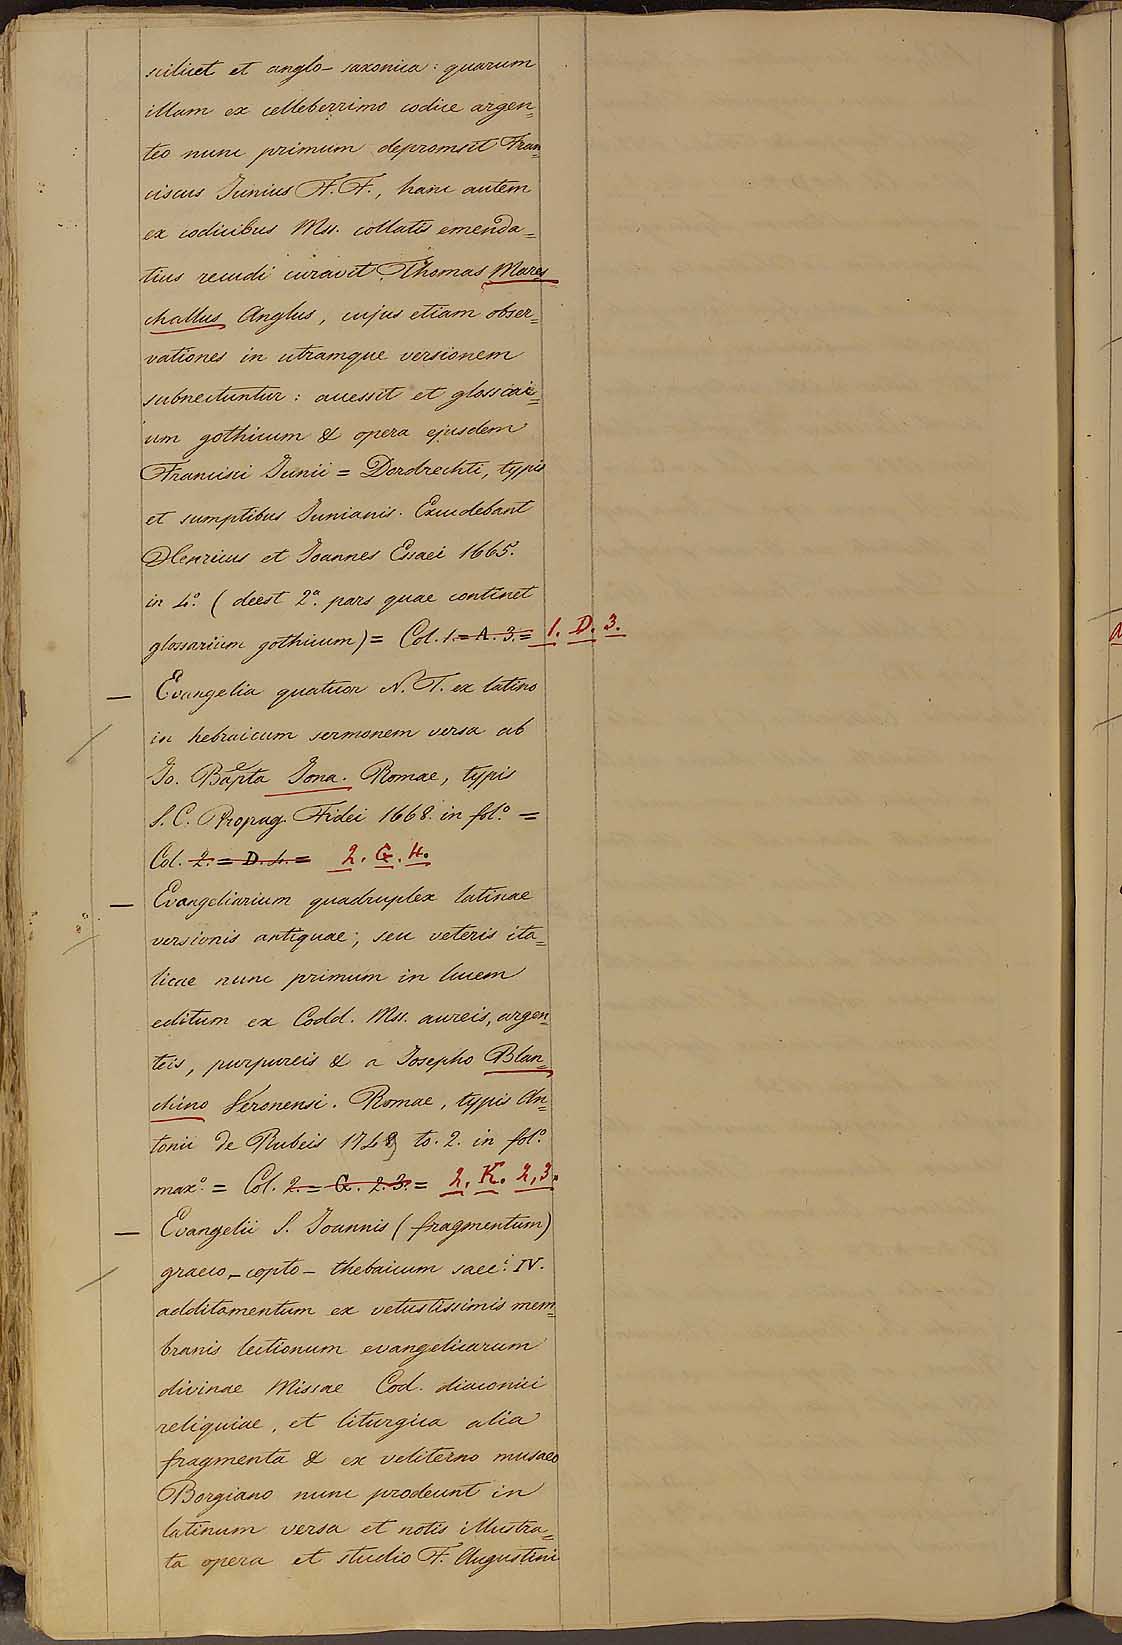 scilicet et anglo-saxonica: quarum
illam ex celleberrimo codice argen=
teo nunc primum depromsit Fran=
ciscus Junius F. F., hanc autem
ex codicibus Mss. collatis emenda=
tius recudi curavit Thomas Mares
challus Anglus, cujus etiam obser=
vationes in utramque versionem
subnectuntur: accessit et glossari=
um gothicum & opera ejusdem
Francisci Junii = Dordrechti, typis
et sumptibus Junianis. Excudebant
Henricus et Joannes Essaei 1665.
in 4.° (deest 2.ª pars quae continet
glossarium gothicum) = Col. 1. = A. 3. = 1. D. 3.
— Evangelia quatuor N. T. ex latino
in hebraicum sermonem versa ab
Jo. Bapta Jona. Romae, typis
S. C. Propag. Fidei 1668. in fol.° =
Col. 2. = D. 4. = 2. G. 4.
— Evangeliarium quadruplex latinae
versionis antiquae, seu veteris ita=
licae nunc primum in lucem
editum ex Codd. Mss. aureis, argen=
teis, purpureis & a Josepho Blan=
chino Veronensi. Romae, typis An=
tonii de Rubeis 1749 to. 2. in fol.°
max.° = Col. 2. = G. 2. 3. = 2. K. 2, 3.
— Evangelii S. Joannis (fragmentum)
graeco-copto-thebaicum saec.i IV.
additamentum ex vetustissimis mem=
branis lectionum evangelicarum
divinae Missae Cod. diaconici
reliquiae, et liturgica alia
fragmenta & ex veliterno musaeo
Borgiano nunc prodeunt in
latinum versa et notis illustra=
ta opera et studio F. Augustini